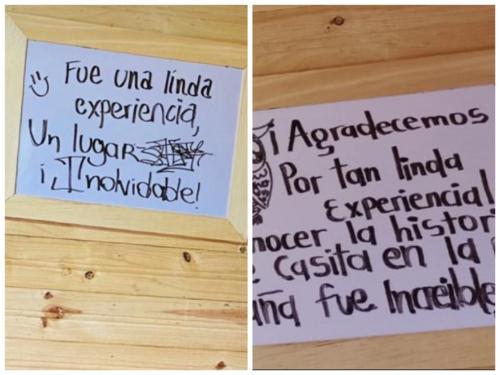 Fue una linda
experiencia,
Un lugar
¡Inolvidable!
¡Agradecemos
Por tan linda
Experiencia!
la histor
casita en la
fue Increible